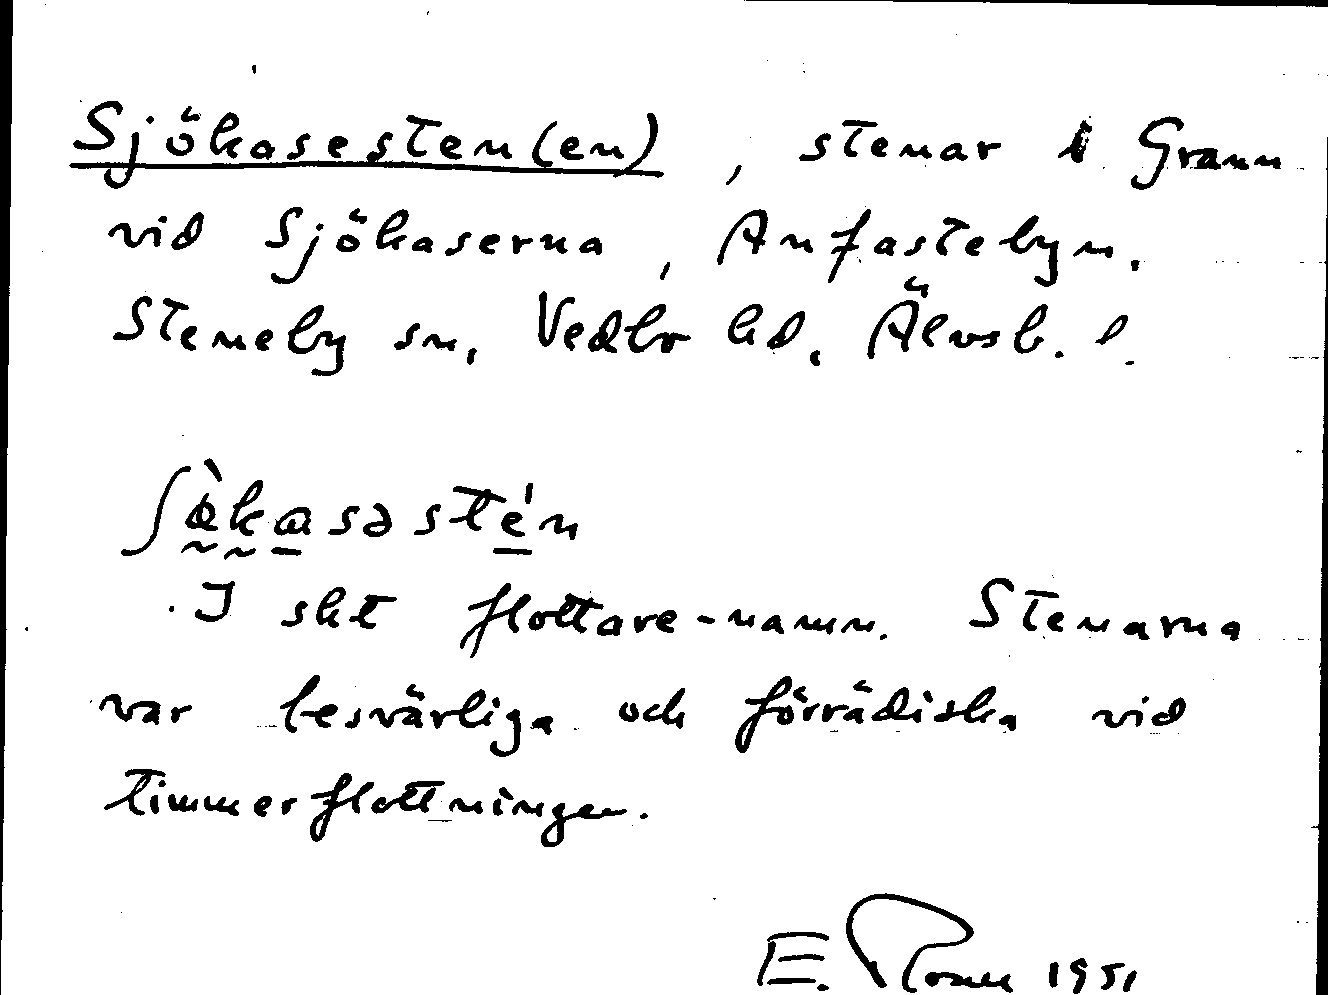 Sjökasesten(en), stenar i Grann
vid Sjökaserna, Anfastebyn.
Steneby sn, Vedbo hd, Älvsb. l.
ʃø̀kasəsté'n
I sht flottare-namn. Stenarna
var besvärliga och förrädiska vid
timmerflottningen.
E. 1951